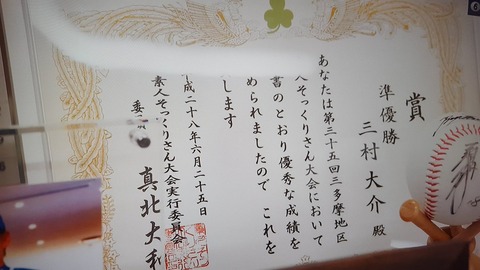 賞
準優勝
三村大介 殿
あなたは第三十五回三多摩地区
人そっくりさん大会において
書のとおり優秀な成績を
められましたので これを
します
成二十八年六月二十五日
素人そっくりさん大会実行委員会
委
真北大